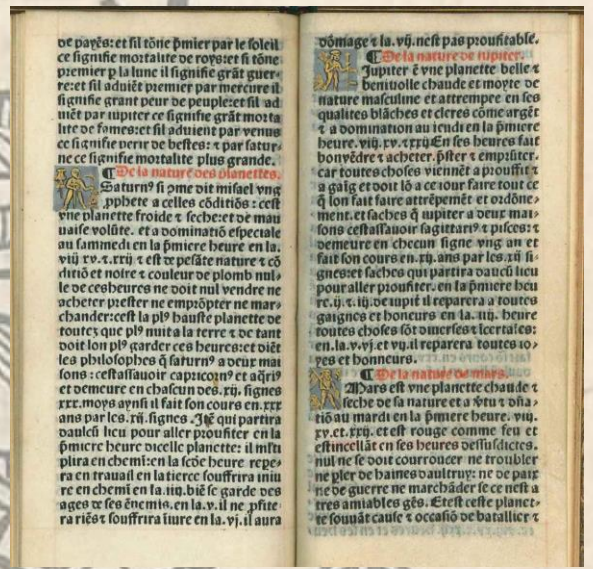 de payẽs: et sil tõne p̃mier par le soleil
ce signifie mortalite de roys: et si tõne
premier p̱ la lune il signifie grãt guer⸗
re: et sil aduiẽt premier par mercure il
signifie grant peur de peuple: et sil ad
uiẽt par iupiter ce signifie grãt morta
lite de fames: et sil aduient par venus
ce signifie perir de bestes: ⁊ par satur⸗
ne ce signifie mortalite plus grande.
¶ De la nature des planettes.
Saturnꝰ si ꝯme dit misael vng
ꝓphete a celles cõditiõs : cest
vne planette froide ⁊ seche: et de mau
uaise volũte. et a dominatiõ especiale
au sammedi en la p̃miere heure en la.
viij xv. ⁊. xxij ⁊ est de pesãte nature ⁊ cõ
ditiõ et noire ⁊ couleur de plomb nul⸗
le de ces heures ne doit nul vendre ne
acheter prester ne emprõpter ne mar⸗
chander: cest la plꝰ hauste planette de
toutez que plꝰ nuit a la terre ⁊ de tant
doit lon plꝰ garder ces heures: et diẽt
les philosophes q̃ saturnꝰ a deux mai
sons : cestassauoir capricornꝰ et aq̃riꝰ
et demeure en chascun des. xij. signes
xxx. moys aynsi il fait son cours en. xxx
ans par les. xij. signes . Itẽ qui partira
daulcũ lieu pour aller proufiter en la
p̃miere heure dicelle planette: il
plira en chemi: en la scõde heure repe⸗
ra en trauail en la tierce souffrira iniu
re en chemi en la. iiij. biẽ se garde des
ages de ses ẽnemis. en la. v. il ne ꝓfite⸗
ra riẽs ⁊ souffrira iiure en la. vj. il aura
dõmage ⁊ la. vij. nest pas proufitable.
¶ De la nature de iupiter.
Jupiter ẽ vne planette belle ⁊
beniuolle chaude et moyte de
nature masculine et attrempee en ses
qualites blãches et cleres cõme argẽt
⁊ a domination au ieudi en la p̃miere
heure. viij. xv. ⁊ xxij En ses heures fait
bon vẽdre ⁊ acheter. p̃ster ⁊ emprũter.
car toutes choses viennẽt a prouffit ⁊
a gaig et doit lõ a ce iour faire tout ce
q̃ lon fait faire attrẽpemẽt et ordõne⸗
ment. et saches q̃ iupiter a deux mai⸗
sons cestassauoir sagittariꝰ ⁊ pisces: ⁊
demeure en checun signe vng an et
fait son cours en. xij. ans par les. xij si⸗
gnes: et saches qui partira daucũ lieu
pour aller proufiter. en la p̃miere heu
re. ij. ⁊. iij. de iupit̃ il reparera a toutes
gaignes et honeurs en la. iiij. heure
toutes choses sõt diuerses ⁊ īcertaĩes:
en. la. v. vj. et vij. il reparera toutes io⸗
yes et honneurs.
¶ De la nature de mars.
Mars est vne planette chaude ⁊
seche de sa nature et a v̾tu ⁊ dñã⸗
tiõ au mardi en la p̃miere heure. viij.
xv. et. xxij. et est rouge comme feu et
estincellãt en ses heures dessusdictes.
nul ne se doit courroucer ne troubler
ne p̱ler de haines daultruy: ne de paix
ne de guerre ne marchãder se ce nest a
tres amiables gẽs. Et est ceste planet⸗
te souuãt cause ⁊ occasiõ de batallier ⁊